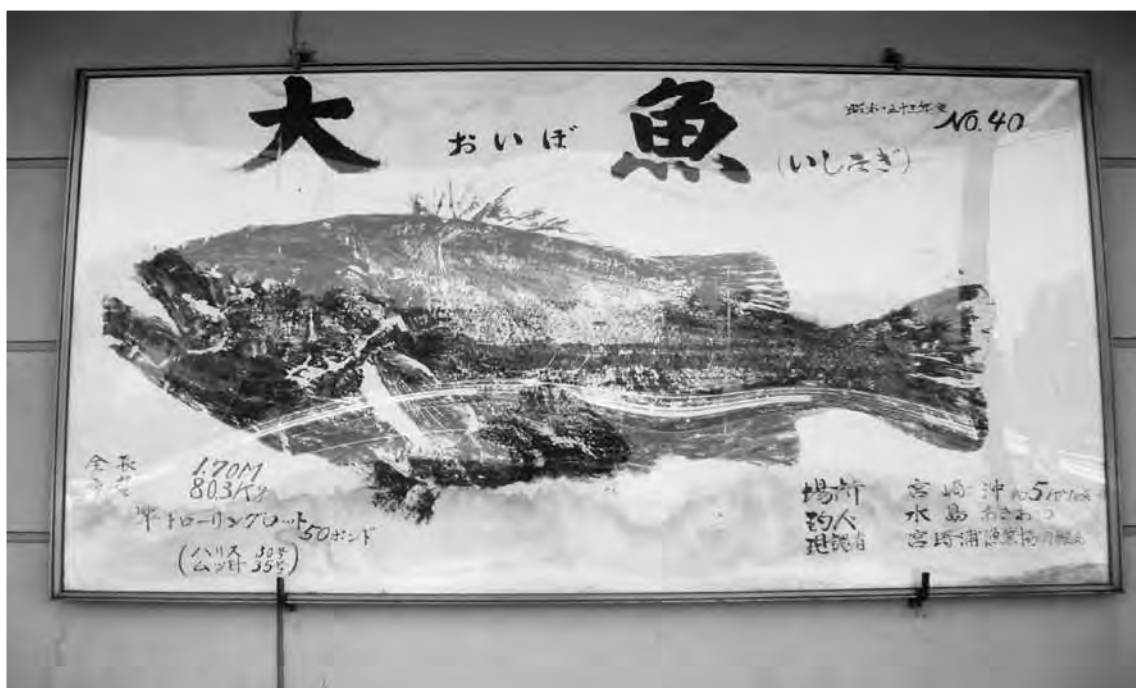 大 おいぼ 魚 (いしなぎ)
NO.40
全長 1.70M
80.3Kg
トローリングロット
50ポンド
(ハリス 30号
ムツ針 35号)
場所 宮崎沖 約5
釣人 水島
現認者 宮崎浦漁業協同組合